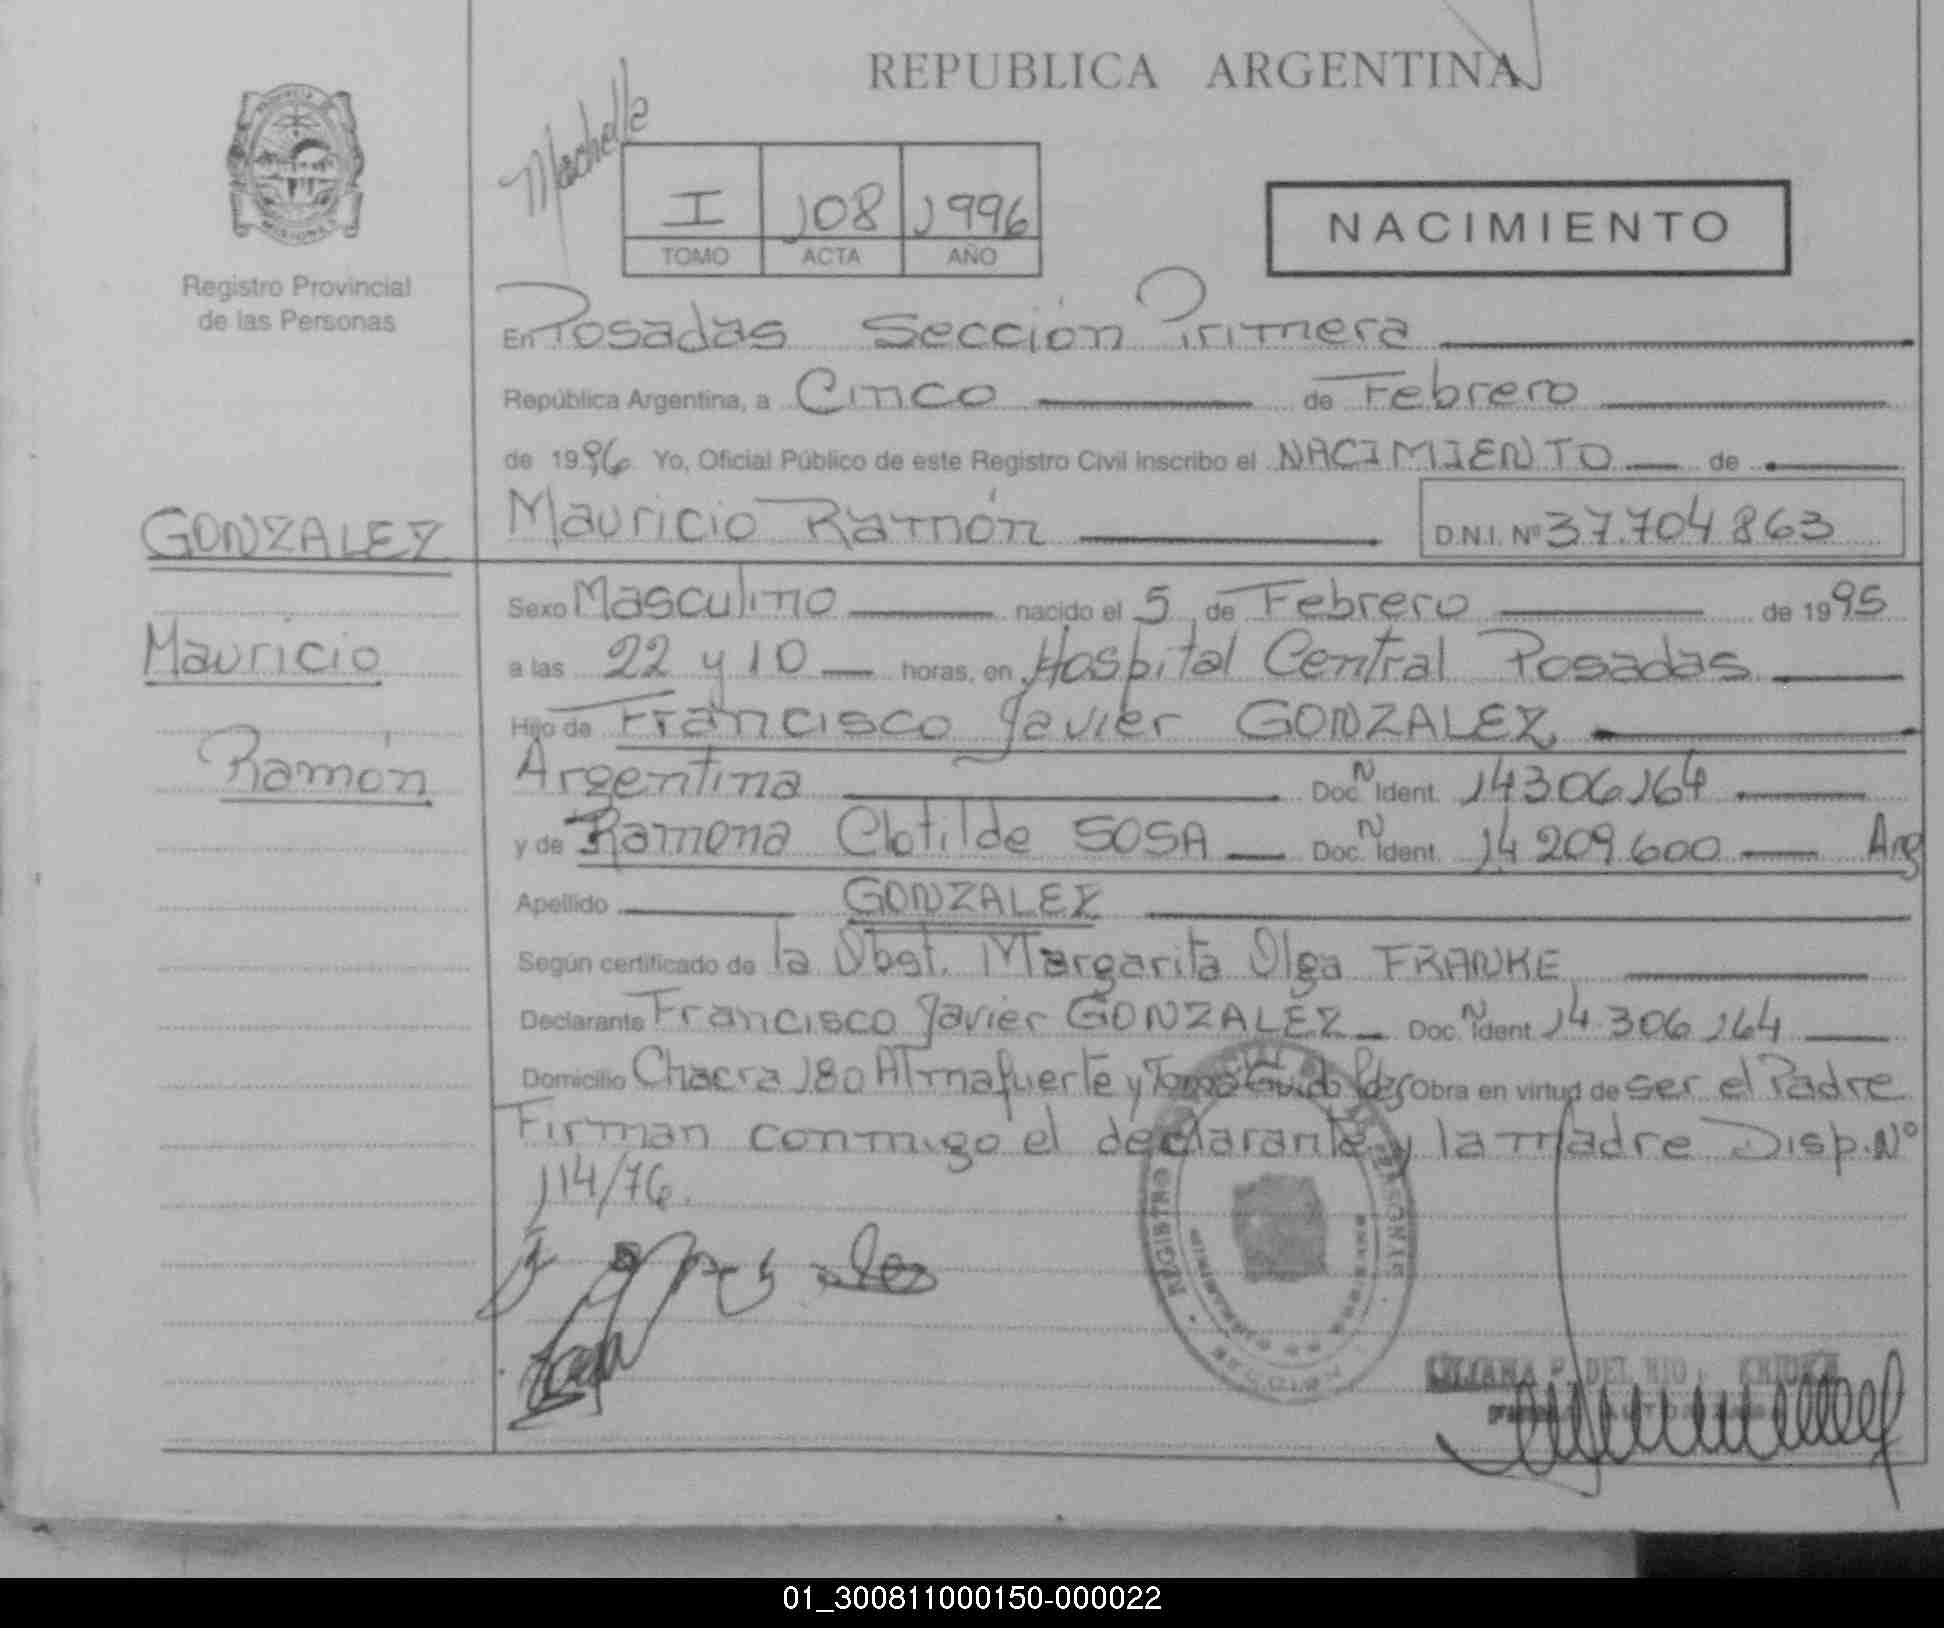 REPUBLICA ARGENTINA
Machelle
I 108 1996
TOMO ACTA AÑO
NACIMIENTO
Registro Provincial
de las Personas
En Posadas Sección Primera
República Argentina, a Cinco de Febrero
de 1996 Yo, Oficial Público de este Registro Civil inscribo el NACIMIENTO de
GONZALEZ
Mauricio Ramón D.N.I. Nº 37.704 863
Sexo Masculino nacido el 5 de Febrero de 1995
Mauricio
a las 22 y 10 horas, en Hospital Central Posadas
Hijo de Francisco Javier GONZALEZ
Ramón
Argentina Doc. N Ident. 14306.164
y de Ramona Clotilde SOSA Doc. N Ident. 14 209.600 Arg
Apellido GONZALEZ
Según certificado de la Obst. Margarita Olga FRANKE
Declarante Francisco Javier GONZALEZ Doc. N Ident 14.306.164
Domicilio Chacra 180 Almafuerte y Tomas Guido Pdas Obra en virtud de ser el Padre
Firman conmigo el declarante y la madre Disp. Nº
114/76.
REGISTRO
MISIONES
LILIANA P. DEL RIO
01_300811000150-000022